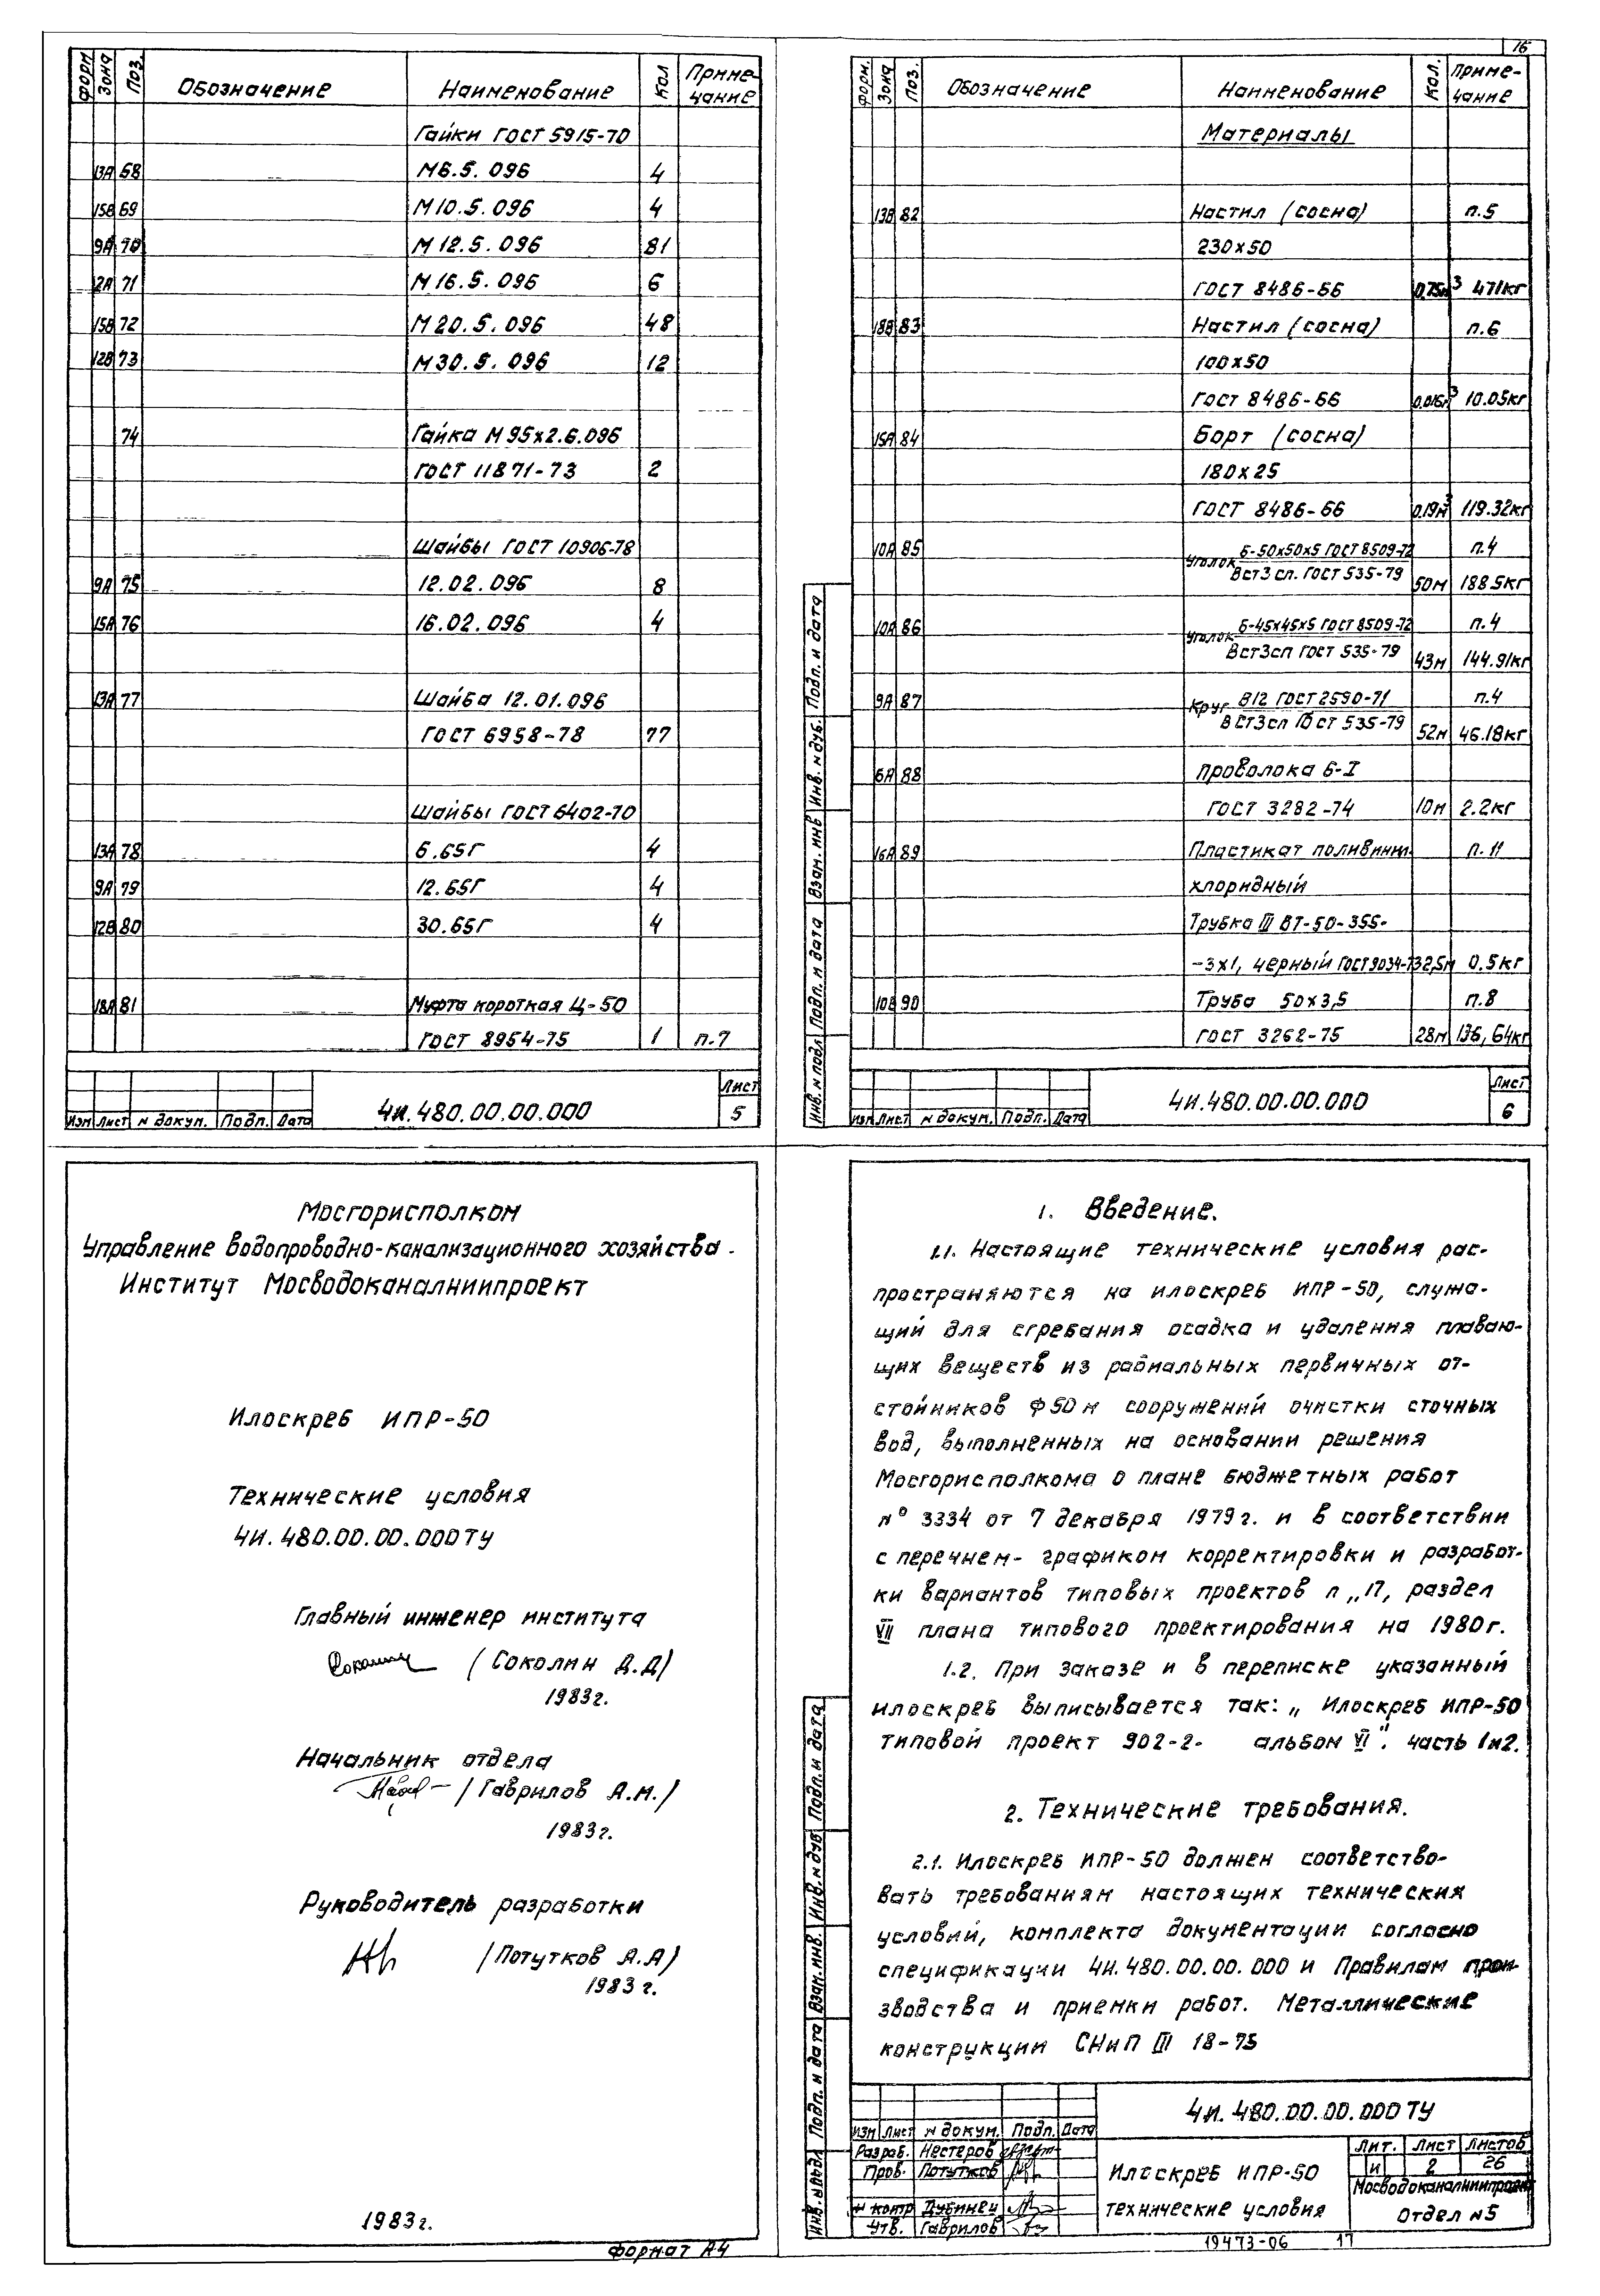 16
Форм Зона Поз. Обозначение Наименование Кол Приме-
чание
Гайки ГОСТ 5915-70
13А 68 М6.5.096 4
15В 69 М10.5.096 4
9А 70 М12.5.096 81
2А 71 М16.5.096 6
15В 72 М20.5.096 48
12В 73 М30.5.096 12
74 Гайка М95х2.6.096
ГОСТ 11871-73 2
Шайбы ГОСТ 10906-78
9А 75 12.02.096 8
15А 76 16.02.096 4
13А 77 Шайба 12.01.096
ГОСТ 6958-78 77
Шайбы ГОСТ 6402-70
13А 78 6.65Г 4
9А 79 12.65Г 4
12В 80 30.65Г 4
18А 81 Муфта короткая Ц-50
ГОСТ 8954-75 1 п.7
Изм Лист N докум. Подп. Дата
4И.480.00.00.000
Лист
5
Форм. Зона Поз. Обозначение Наименование Кол. Приме-
чание
Материалы
13В 82 Настил (сосна) п.5
230х50
ГОСТ 8486-66 0,75м3 471кг
18В 83 Настил (сосна) п.6
100х50
ГОСТ 8486-66 10.05кг
15А 84 Борт (сосна)
180х25
ГОСТ 8486-66 0.19м3 119.32кг
10А 85 Уголок Б-50х50х5 ГОСТ 8509-72 п.4
ВСт3сп. ГОСТ 535-79 50м 188.5кг
10А 86 Уголок Б-45х45х5 ГОСТ 8509-72 п.4
ВСт3сп ГОСТ 535-79 43м 144.91кг
9А 87 Круг В12 ГОСТ 2590-71 п.4
ВСт3сп ГОСТ 535-79 52м 46.18кг
6А 88 Проволока 6-I
ГОСТ 3282-74 10м 2.2кг
16А 89 Пластикат поливинил- п.11
хлоридный
Трубка III ВТ-50-355-
-3х1, черный ГОСТ 9034-73 2,5м 0.5кг
10В 90 Труба 50х3,5 п.8
ГОСТ 3262-75 28м 136,64кг
Инв. N подл Подп. и дата Взам. инв Инв. N дуб. Подп. и дата
Изм Лист N докум. Подп. Дата
4И.480.00.00.000
Лист
6
Мосгорисполком
Управление водопроводно-канализационного хозяйства.
Институт Мосводоканалниипроект
Илоскреб ИПР-50
Технические условия
4И.480.00.00.000ТУ
Главный инженер института
(Соколин Д.Д)
1983г.
Начальник отдела
(Гаврилов А.М.)
1983г.
Руководитель разработки
(Потутков А.А)
1983г.
1983г.
Формат А4
1. Введение.
1.1. Настоящие технические условия рас-
пространяются на илоскреб ИПР-50, служа-
щий для сгребания осадка и удаления плаваю-
щих веществ из радиальных первичных от-
стойников Ф50м сооружений очистки сточных
вод, выполненных на основании решения
Мосгорисполкома о плане бюджетных работ
№ 3334 от 7 декабря 1979г. и в соответствии
с перечнем-графиком корректировки и разработ-
ки вариантов типовых проектов п „17, раздел
VII плана типового проектирования на 1980г.
1.2. При заказе и в переписке указанный
илоскреб выписывается так: „ Илоскреб ИПР-50
типовой проект 902-2- альбом VI". часть 1и2.
2. Технические требования.
2.1. Илоскреб ИПР-50 должен соответство-
вать требованиям настоящих технических
условий, комплекта документации согласно
спецификации 4И.480.00.00.000 и Правилам прои-
зводства и приемки работ. Металлические
конструкции СНиП III 18-75
Инв. N подл Подп. и дата Взам. инв. Инв. N дуб Подп. и дата
Изм Лист N докум. Подп. Дата
Разраб. Нестеров
Пров. Потутков
Н контр Дубинец
Утв. Гаврилов
4И.480.00.00.000 ТУ
Илоскреб ИПР-50
технические условия
Лит. Лист Листов
И 2 26
Мосводоканалниипроект
Отдел N5
19473-06 17